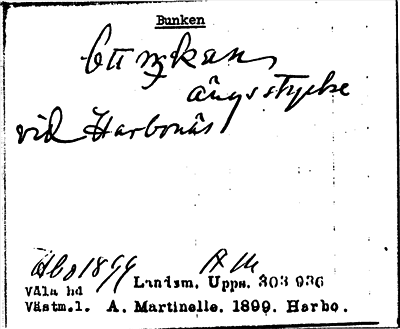 Bunken
ängsstycke
vid Harbonäs
1899 AM
Våla hd Landsm. Upps. 303 936
Västm.l. A. Martinelle. 1899. Harbo.